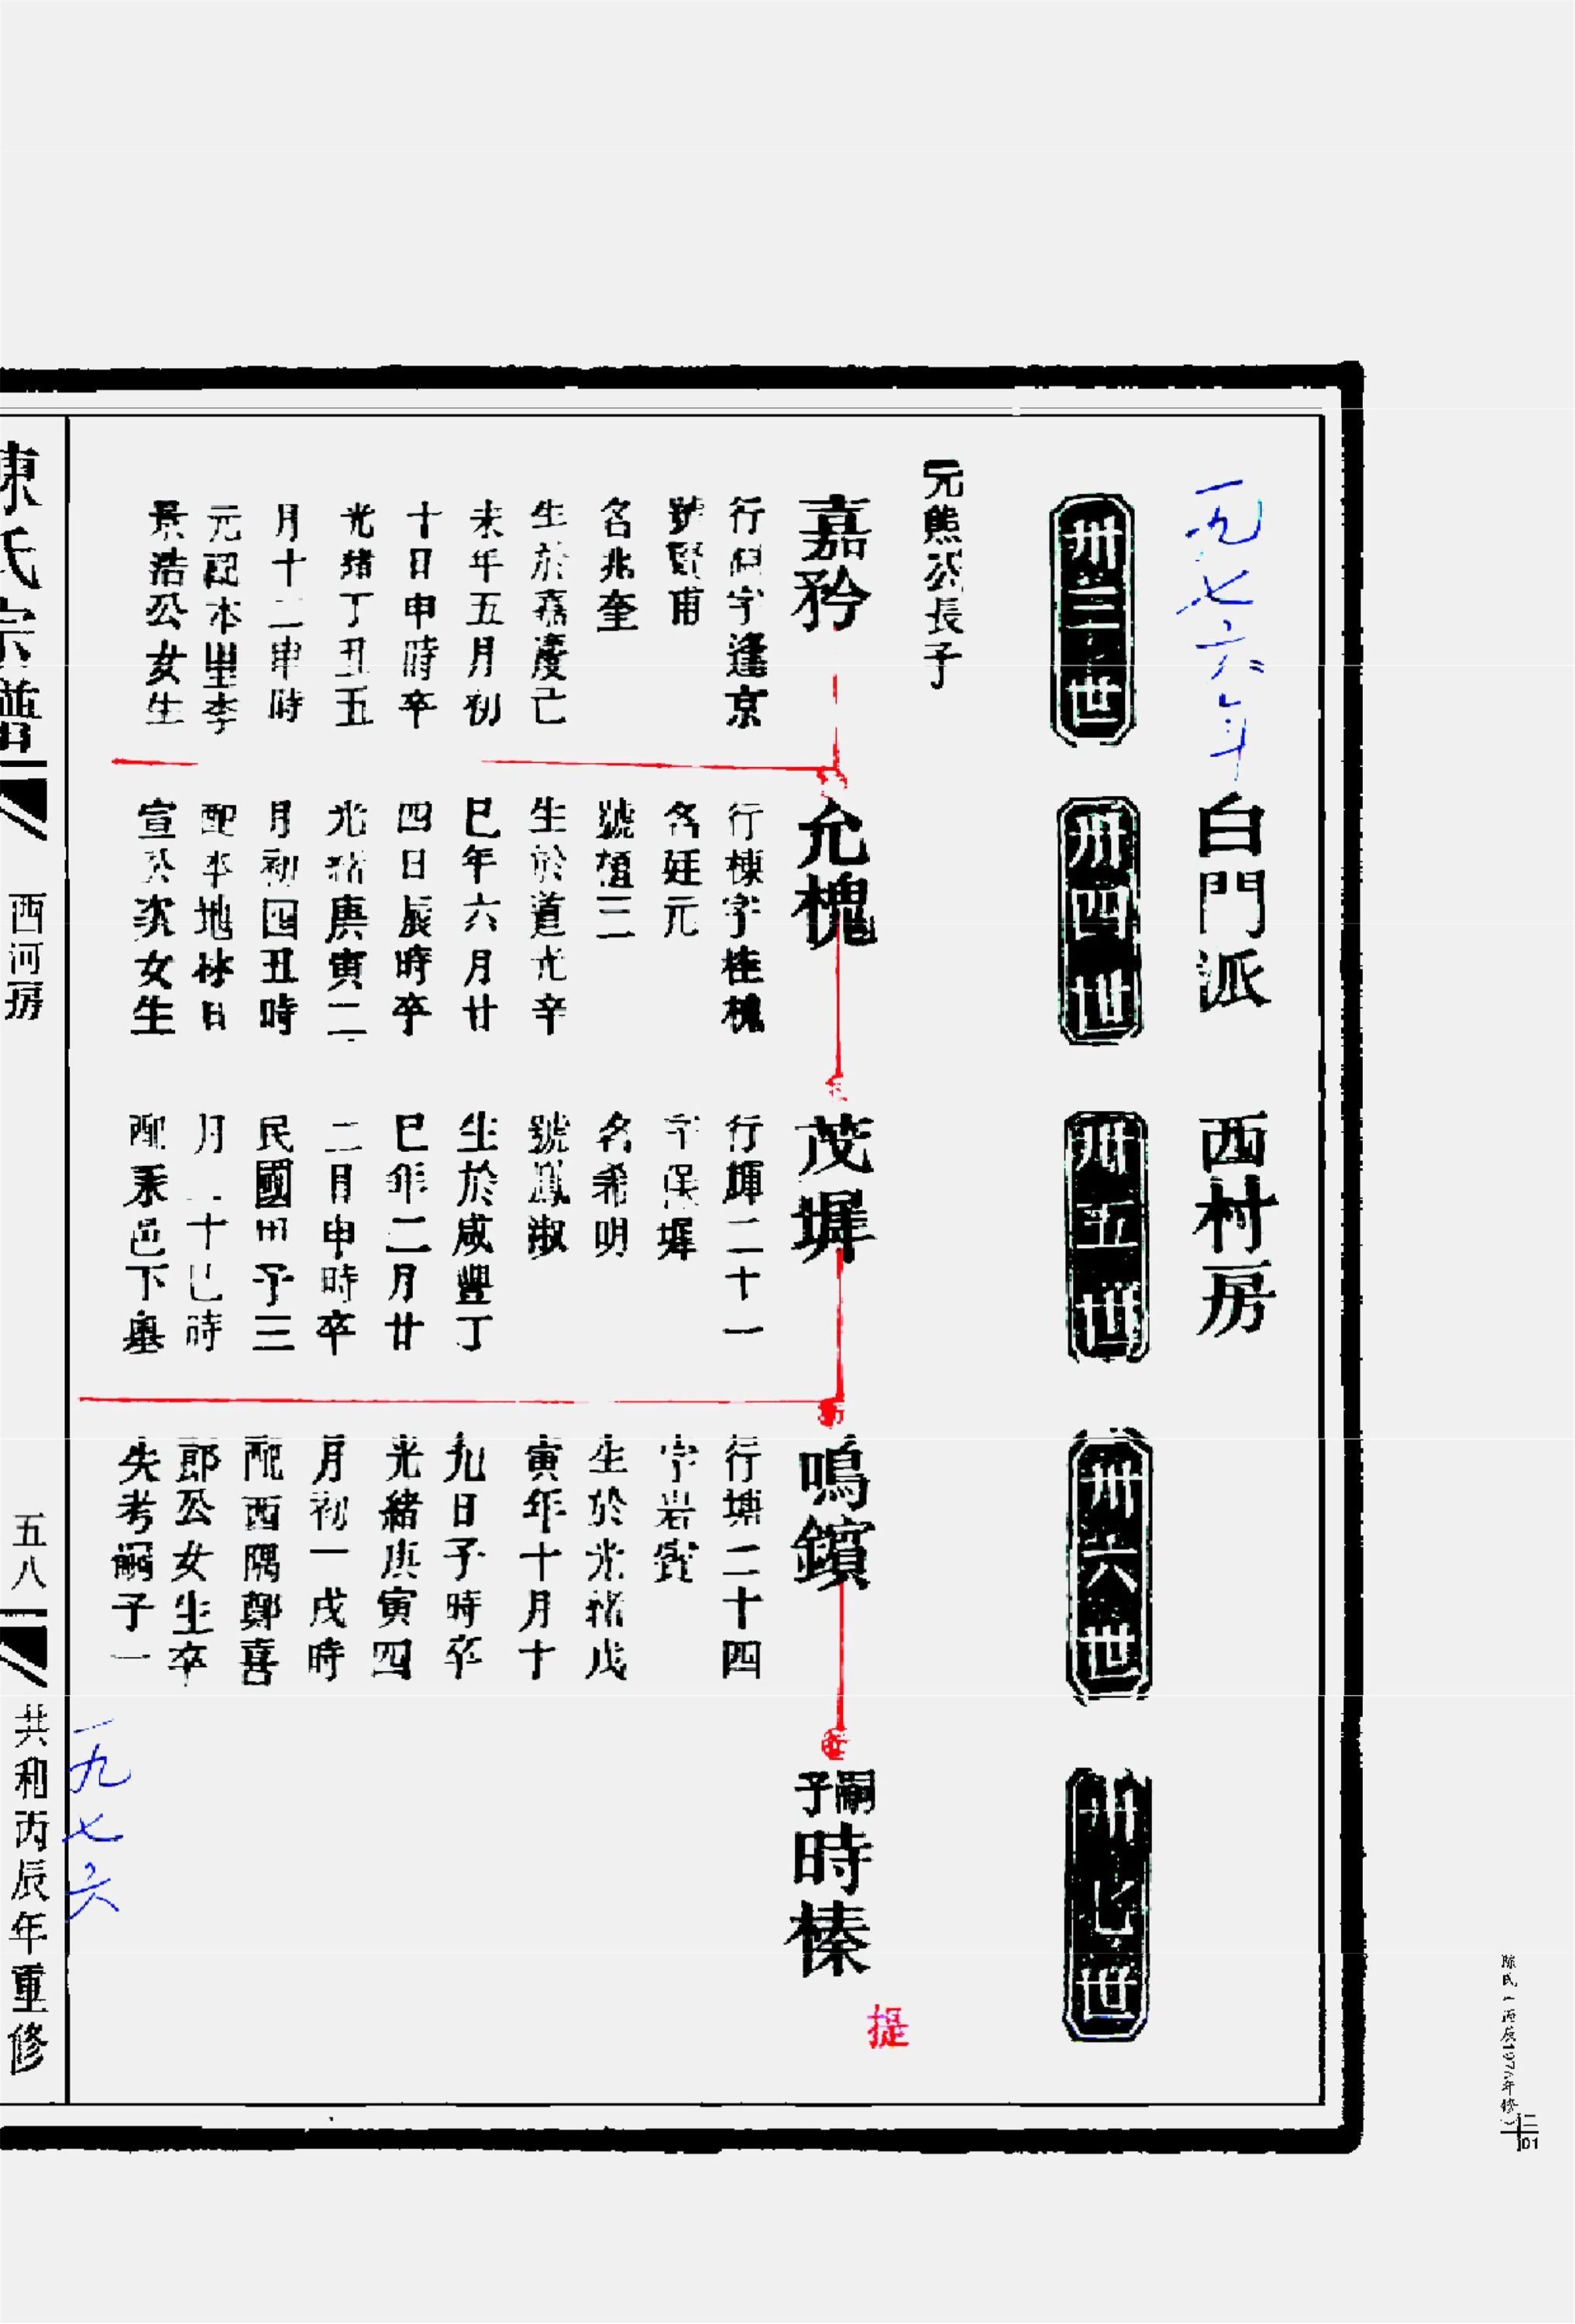 一九七六年
白門派 西村房
卅三世
卅四世
卅五世
卅六世
卅七世
元熊公長子
嘉矜
行但字逢京
號賢甫
名兆奎
生於嘉慶己
未年五月初
十日申時卒
光緒丁丑五
月十二申時
元配本里李
景浩公女生
允槐
行棟字桂槐
名廷元
號植三
生於道光辛
巳年六月廿
四日辰時卒
光緒庚寅二
月初四丑時
配本地林日
宣公次女生
茂墀
行墀二十一
字保墀
名希明
號鳳淑
生於咸豐丁
巳年二月廿
二日申時卒
民國 子三
月二十巳時
配泰邑下墺
鳴鑌
行塘二十四
字岩賓
生於光緒戊
寅年十月十
九日子時卒
光緒庚寅四
月初一戌時
配西隅鄭喜
郎公女生卒
失考嗣子一
嗣子
時榛
提
陳氏宗譜
西河房
五八
共和丙辰年重修
一九七六
陳氏(丙辰1976年修)
二
01